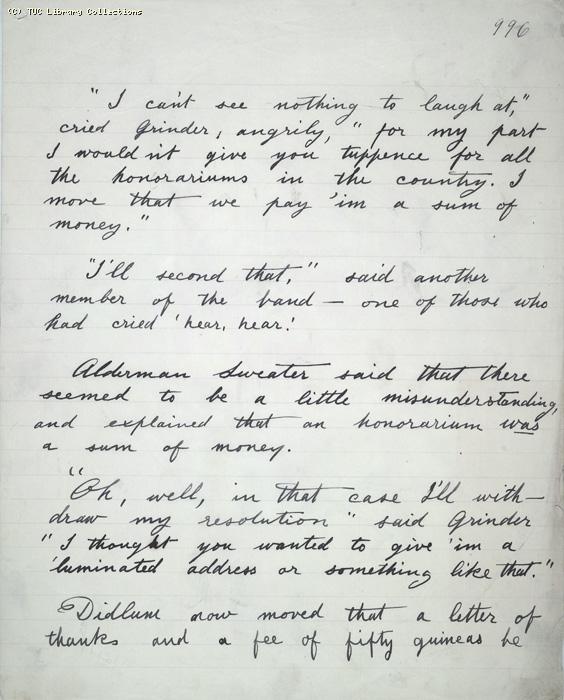 (C) TUC Library Collections
996
"I can't see nothing to laugh at,"
cried Grinder, angrily, "for my part
I wouldn't give you tuppence for all
the honorariums in the country. I
move that we pay 'im a sum of
money."
"I'll second that," said another
member of the band – one of those who
had cried 'hear, hear.'
Alderman Sweater said that there
seemed to be a little misunderstanding,
and explained that an honorarium was
a sum of money.
"Oh, well, in that case I'll with–
draw my resolution" said Grinder
"I thought you wanted to give 'im a
'luminated address or something like that."
Didlum now moved that a letter of
thanks and a fee of fifty guineas be